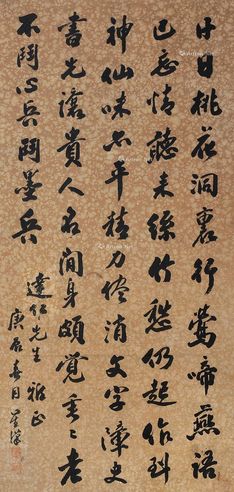 廿日桃花洞裏行鶯啼燕語
已忘情聽來絲竹愁仍起作到
神仙味亦平精力消文字障史
書先讓貴人名閒身頗覺垂々老
不鬥心兵鬥墨兵
達仁先生 雅正
庚辰春日